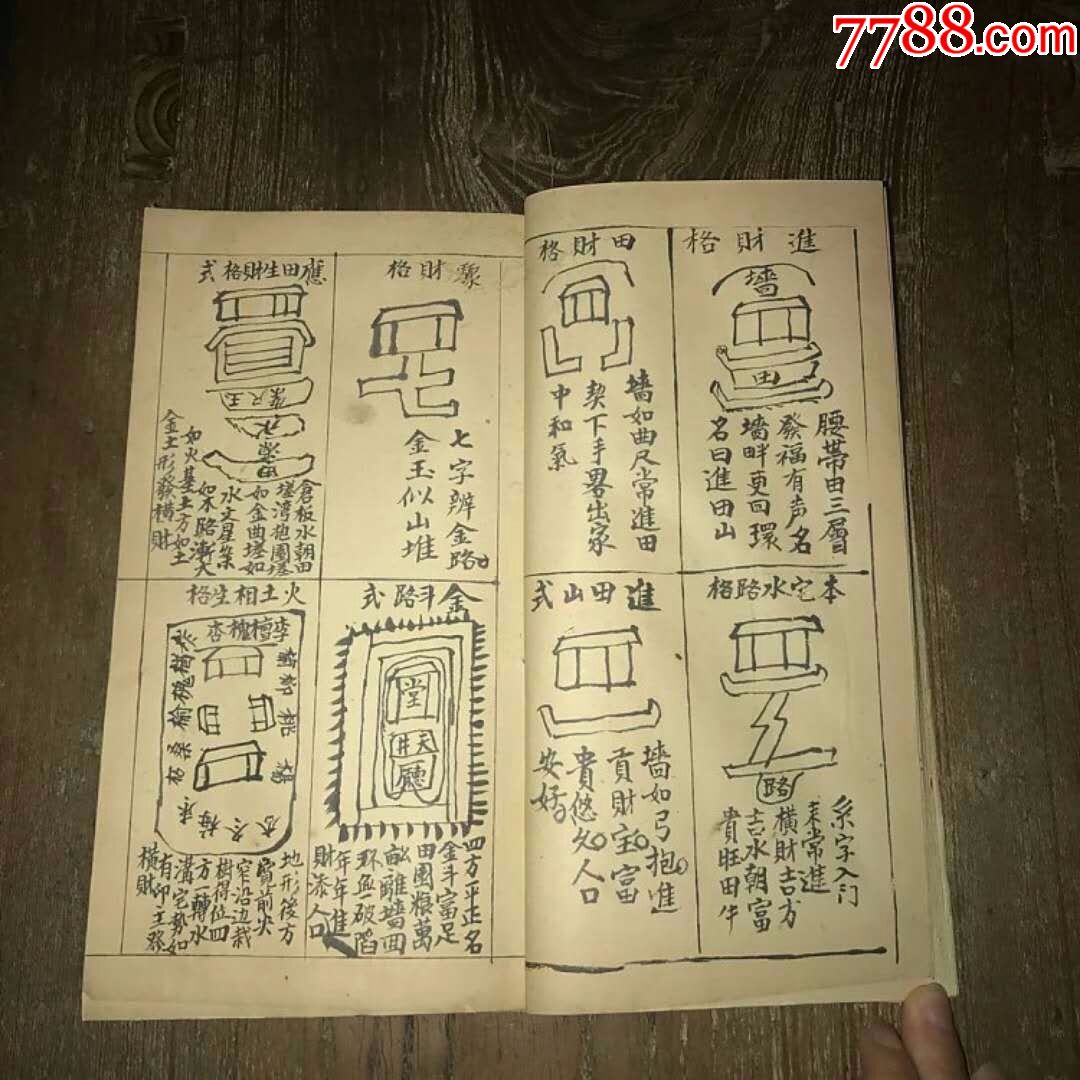 7788.com
進財格
墻
田
腰帶田三層
發福有声名
墻畔更回環
名曰進田山
田財格
墻如曲尺常進田
契下手畧出家
中和氣
本宅水路格
路
糸字入门
来常進
橫財吉方
吉水朝富
貴旺田牛
進田山式
墻如弓抱進
貢財宝富
貴悠久人口
安好
財格
七字辨金路
金玉似山堆
應田生財格式
水
田
倉板水朝田
堘湾抱圍堘
如金曲堘如
水文星案
如木路漸大
如火基土方如土
金土形發橫財
金斗路式
堂
天井
廳
四方平正名
金斗富足
田園粮萬
畝離墻面
环魚一破陷
年年進
財添人口
火土相生格
李檀槐杏
槐榆桑柘
地形後方
寬前尖
窄沿边栽
樹得位四
方一轉水
溝宅勢如
有印主發
橫財